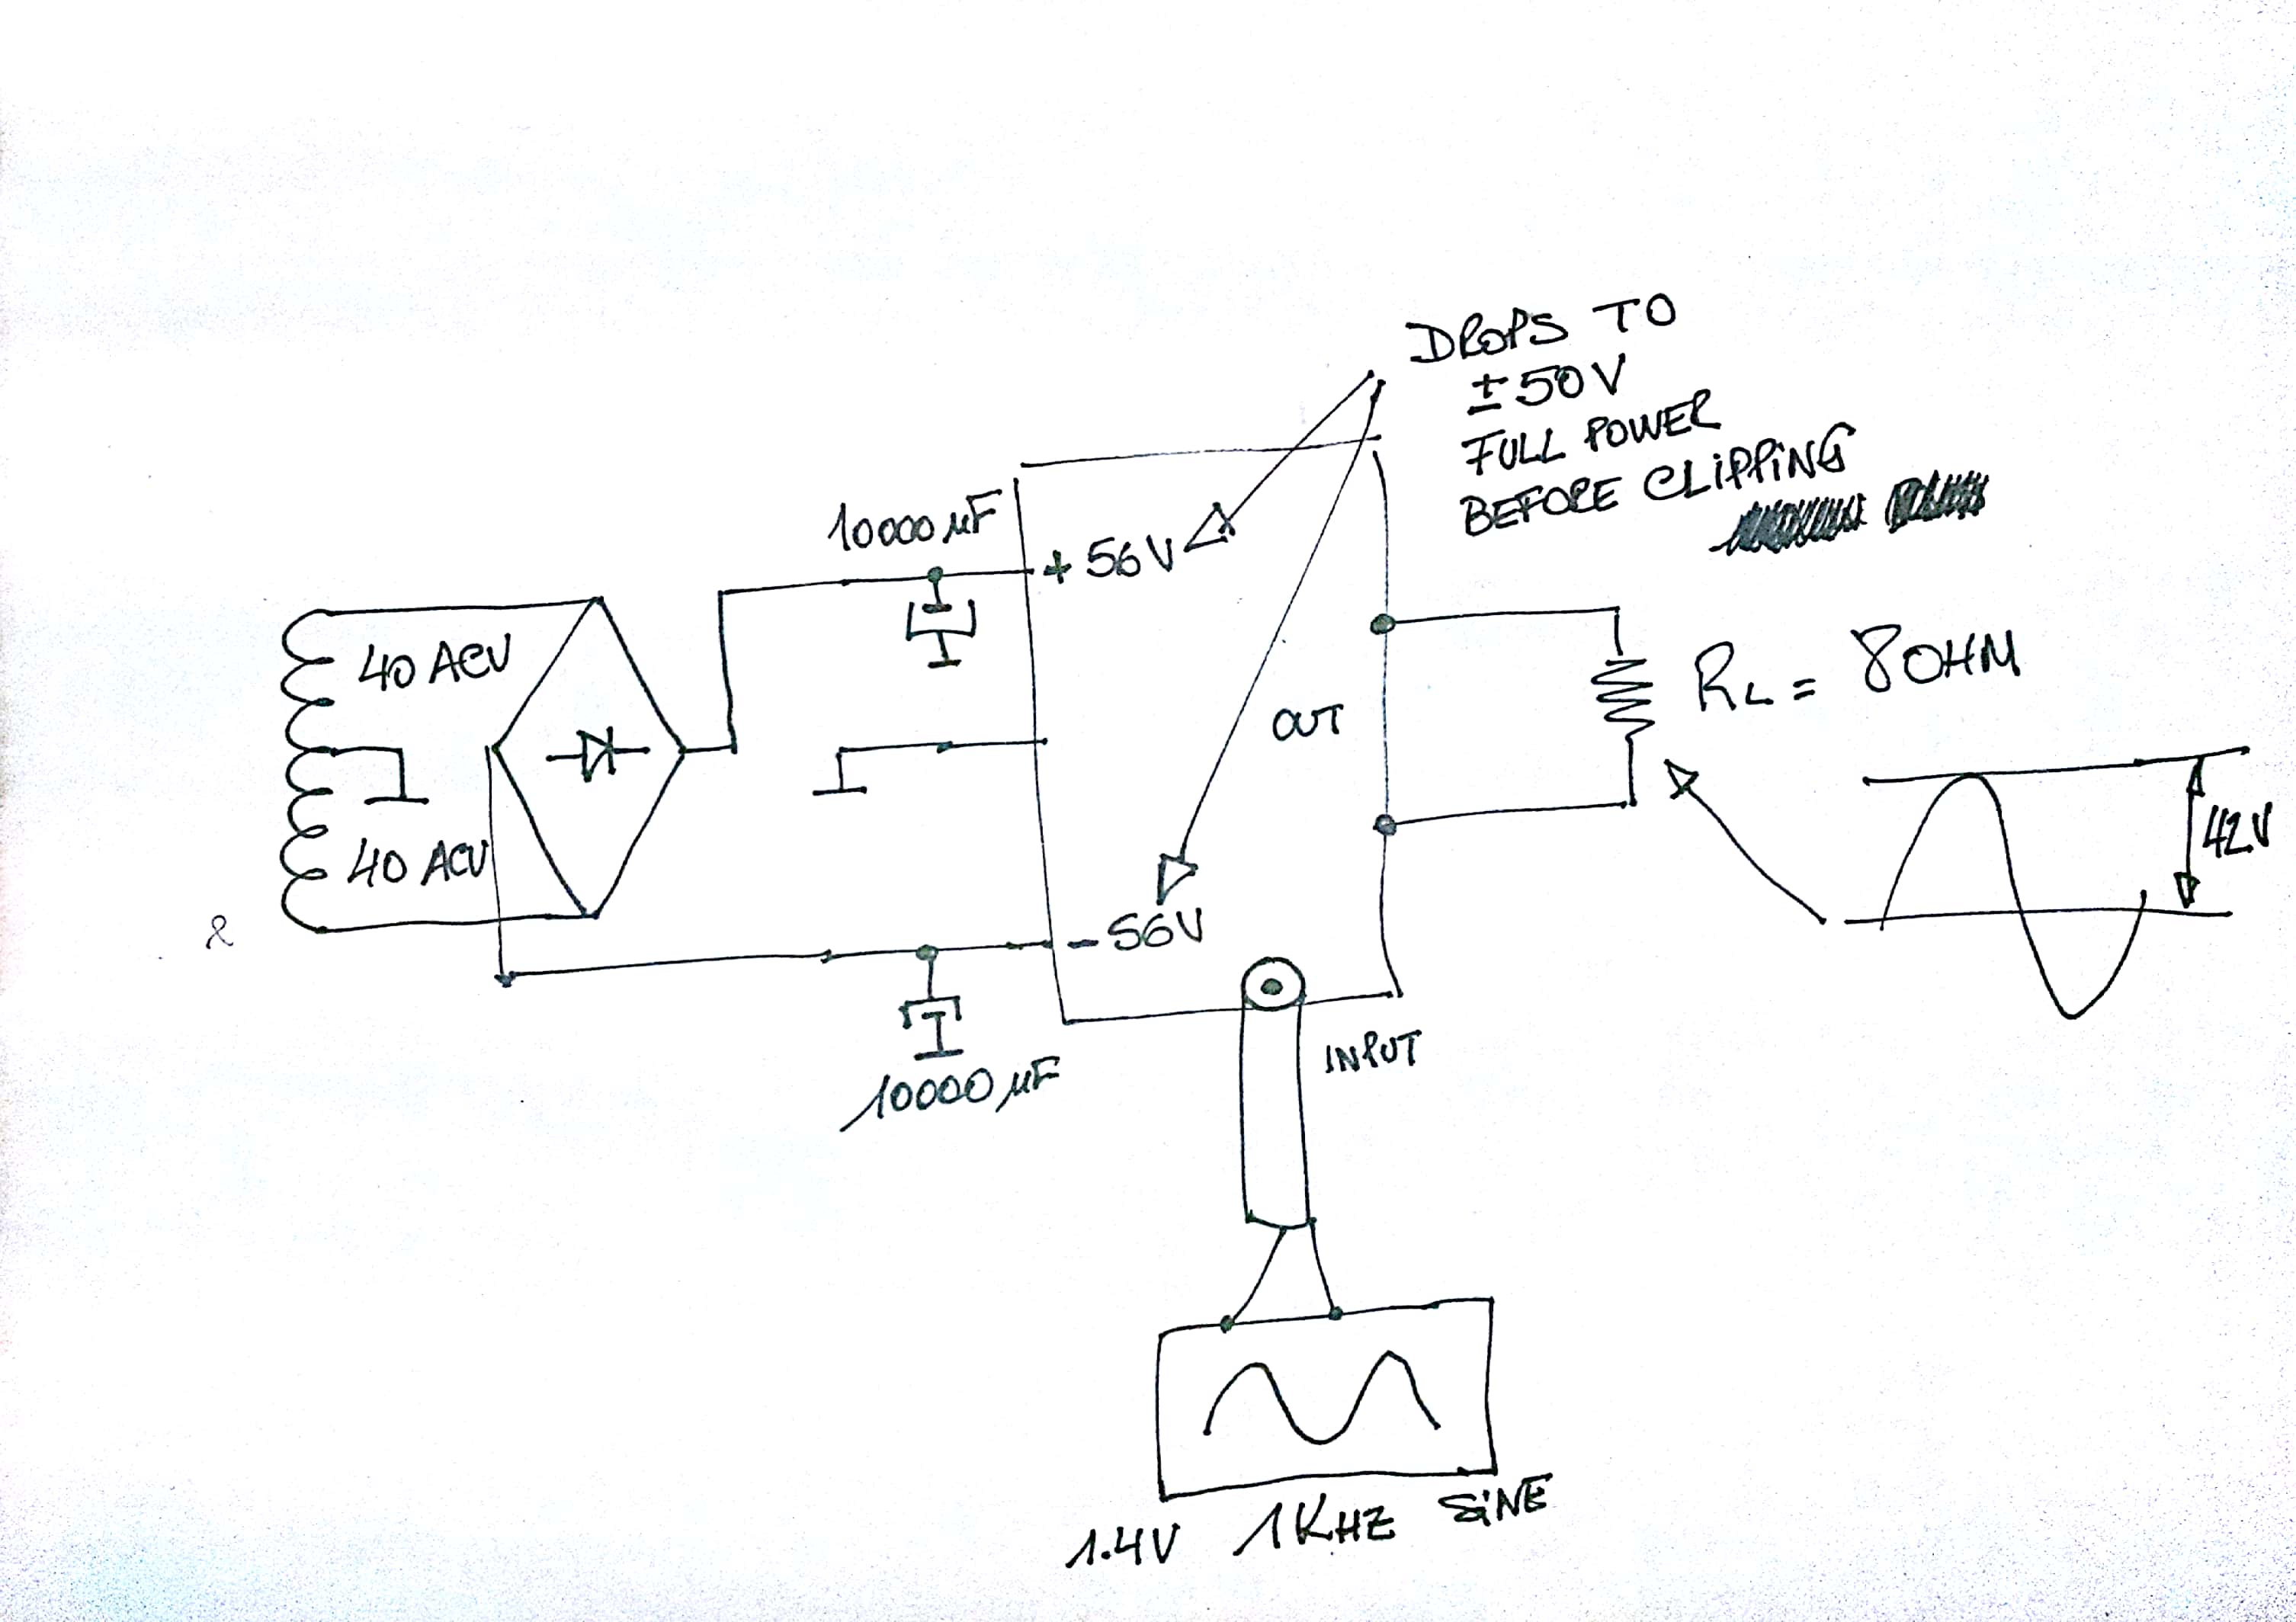 DROPS TO
±50V
FULL POWER
BEFORE CLIPPING
10000 µF
+56V
40 ACV
OUT
RL = 8OHM
42V
40 ACV
-56V
INPUT
10000 µF
1.4V 1KHZ SiNE